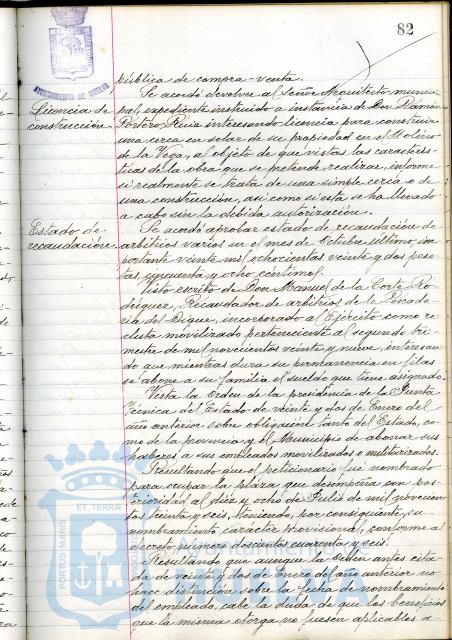 82
AYUNTAMIENTO DE HUELVA
pública de compra-venta.
Se acordó devolver al Señor Arquitecto munici-
Licencia de
construcción
pal, expediente instruido a instancia de Don Ramón
Portero Ruiz interesando licencia para construir
una cerca en solar de su propiedad en el Molino
de la Vega, al objeto de que vistas las caracterís-
ticas de la obra que se pretende realizar, informe
si realmente se trata de una simple cerca o de
una construcción, así como si esta se ha llevado
a cabo sin la debida autorización.
Estado de
recaudación
Se acordó aprobar estado de recaudación de
arbitrios varios en el mes de Octubre último, im-
portante veinte mil ochocientas veinte y dos pese-
tas, cincuenta y ocho céntimos.
Visto escrito de Don Manuel de la Corte Ro-
dríguez, Recaudador de arbitrios de la Pescade-
ría del Dique, incorporado al Ejército como re-
cluta movilizado perteneciente al segundo tri-
mestre de mil novecientos veinte y nueve, interesan-
do que mientras dura su permanencia en filas
se abone a su familia el sueldo que tiene asignado.
Vista la Orden de la presidencia de la Junta
Técnica del Estado de veinte y dos de Enero del
año anterior sobre obligación tanto del Estado, co-
mo de la provincia y el Municipio de abonar sus
haberes a sus empleados movilizados o militarizados.
Resultando que el peticionario fué nombrado
para ocupar la plaza que desempeña con pos-
terioridad al diez y ocho de Julio de mil novecien-
tos treinta y seis, teniendo, por consiguiente, su
nombramiento carácter provisional, conforme al
decreto número doscientos cuarenta y seis.
Resultando que aunque la Orden antes cita-
da de veinte y dos de Enero del año anterior no
hace distinción sobre la fecha de nombramiento
del empleado, cabe la duda de que los beneficios
que la misma otorga no fuesen aplicables a
ET TERRA
PORTUS MARIS
Ayuntamiento de